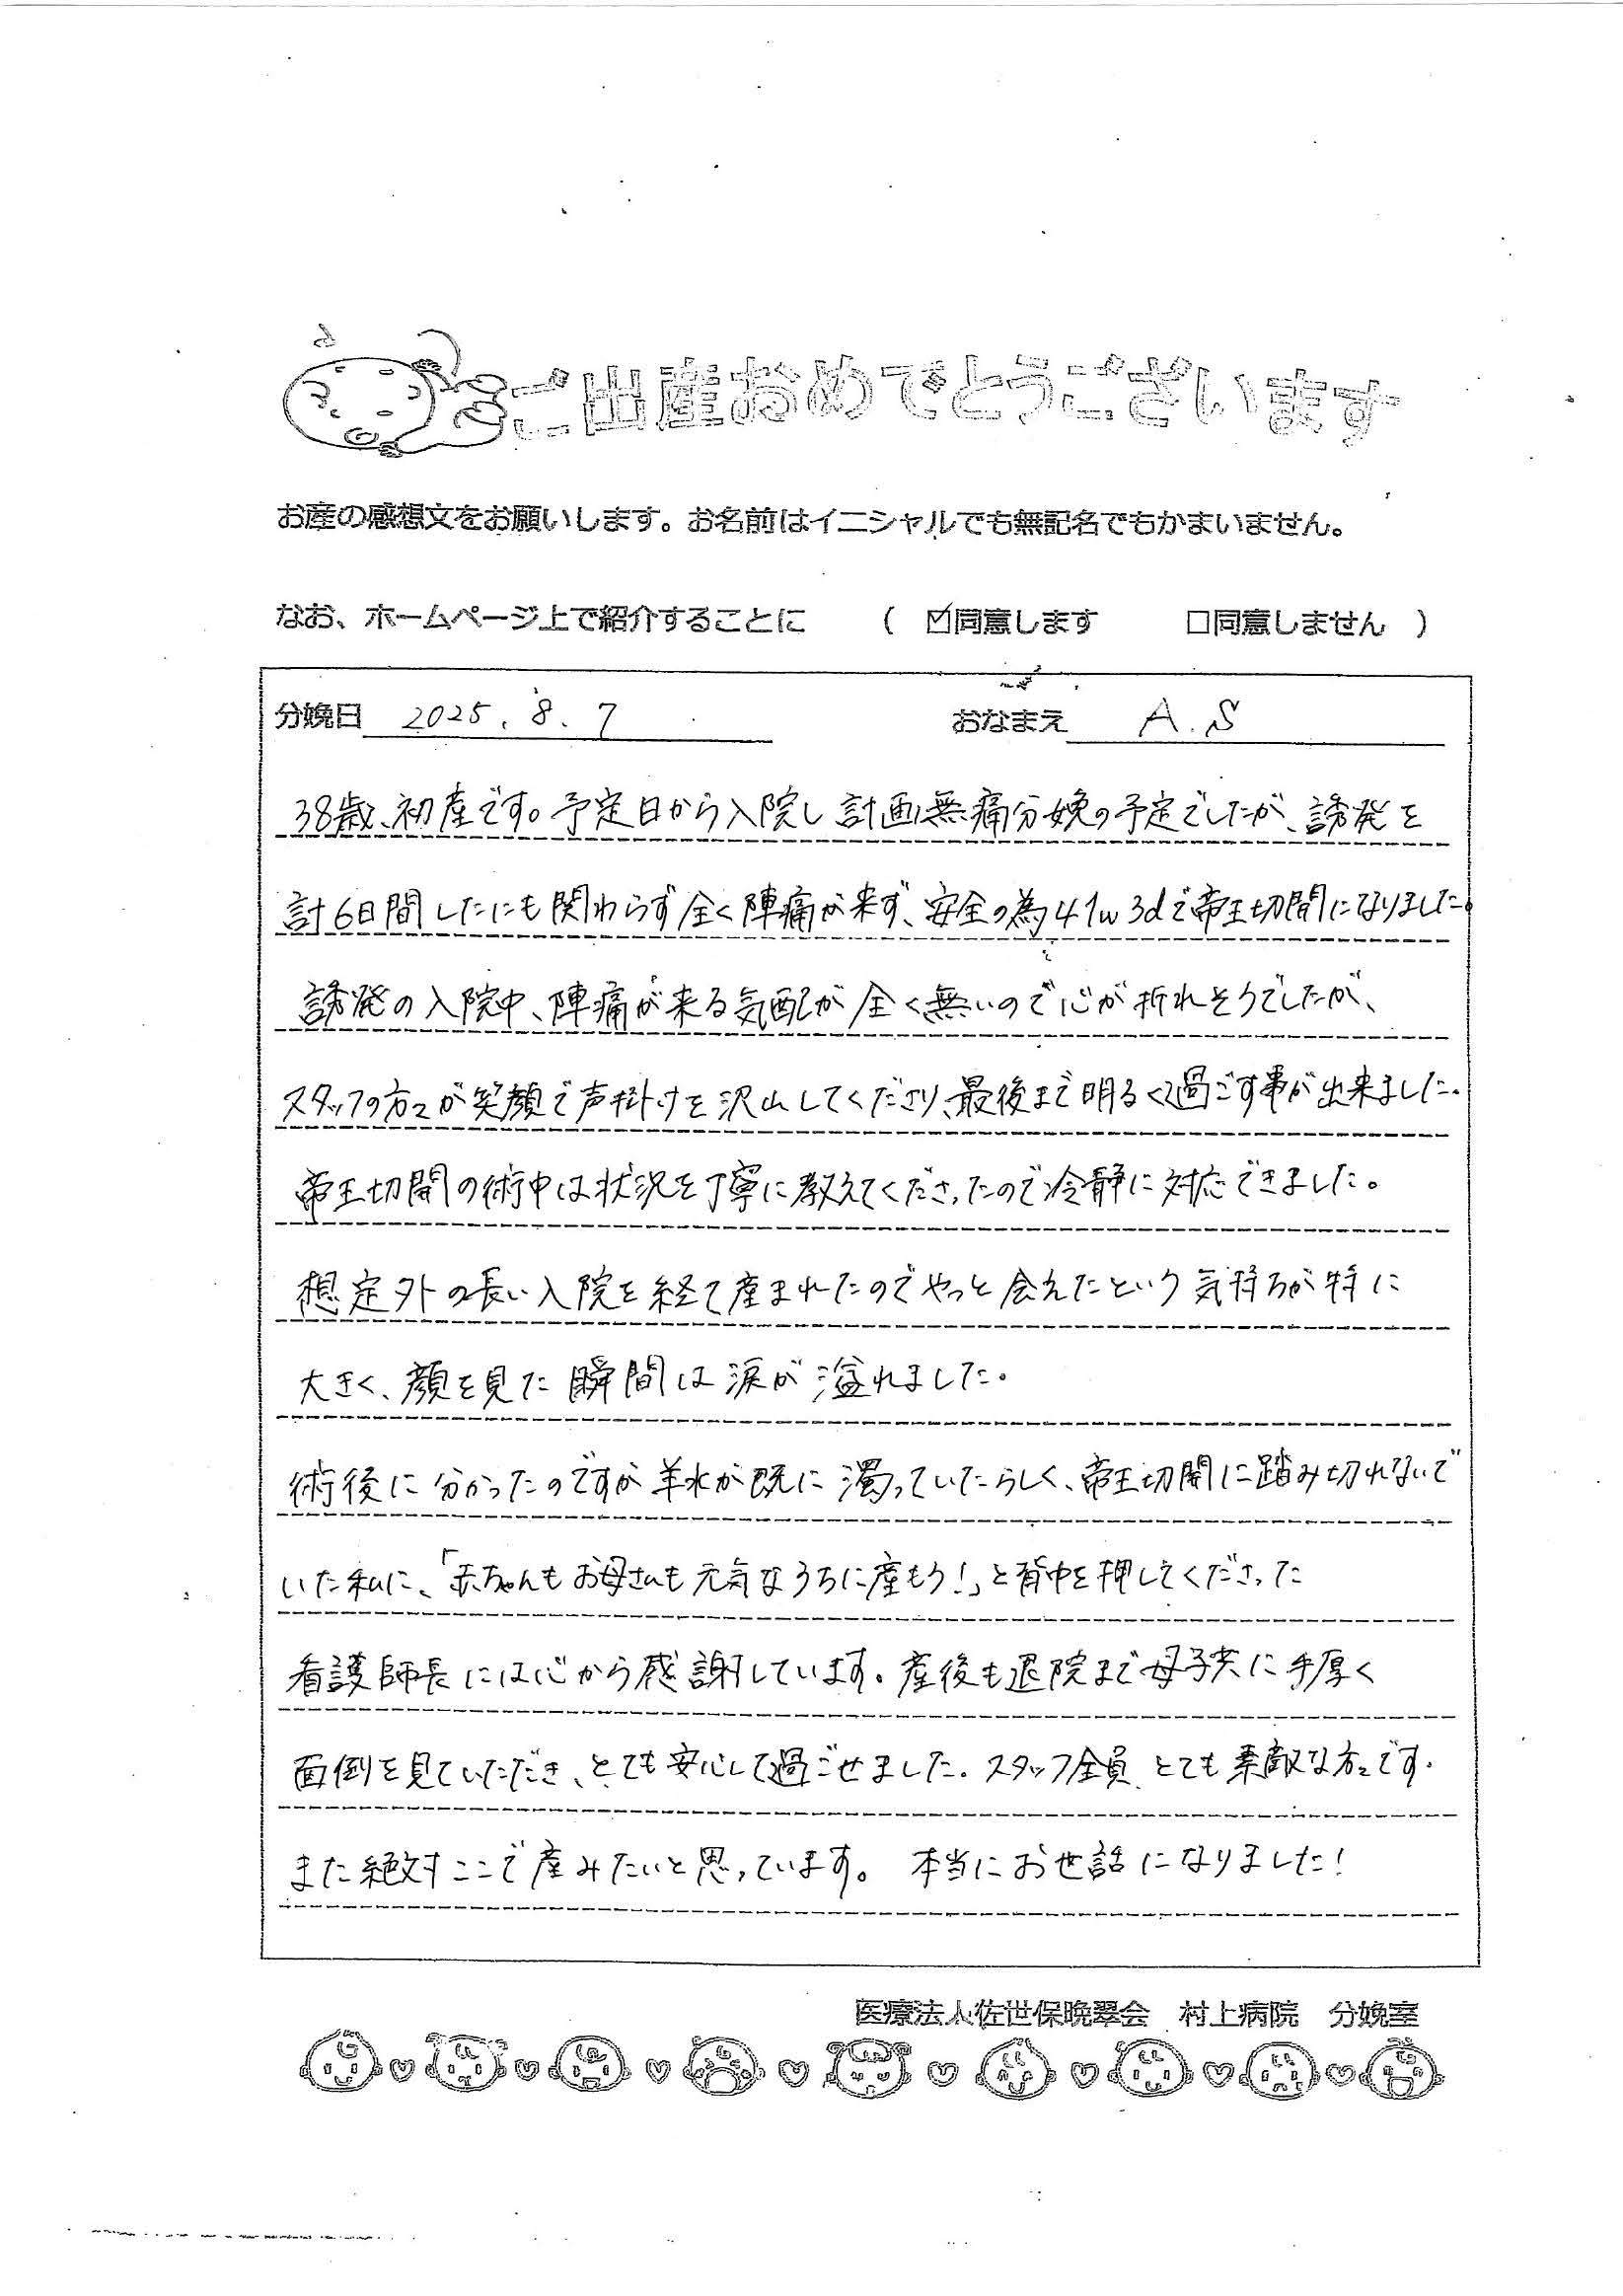 ご出産おめでとうございます
お産の感想文をお願いします。お名前はイニシャルでも無記名でもかまいません。
なお、ホームページ上で紹介することに （ ☑同意します □同意しません ）
分娩日 2025.8.7 おなまえ A.S
38歳、初産です。予定日から入院し計画無痛分娩の予定でしたが、誘発を
計6日間したにも関わらず全く陣痛が来ず、安全の為41w3dで帝王切開になりました。
誘発の入院中、陣痛が来る気配が全く無いので心が折れそうでしたが、
スタッフの方々が笑顔で声掛けを沢山してくださり、最後まで明るく過ごす事が出来ました。
帝王切開の術中は状況を丁寧に教えてくださったので冷静に対応できました。
想定外の長い入院を経て産まれたのでやっと会えたという気持ちが特に
大きく、顔を見た瞬間は涙が溢れました。
術後に分かったのですが羊水が既に濁っていたらしく、帝王切開に踏み切れないで
いた私に、「赤ちゃんもお母さんも元気なうちに産もう！」と背中を押してくださった
看護師長には心から感謝しています。産後も退院まで母子共に手厚く
面倒を見ていただき、とても安心して過ごせました。スタッフ全員、とても素敵な方々です。
また絶対ここで産みたいと思っています。 本当にお世話になりました！
医療法人佐世保晩翠会 村上病院 分娩室